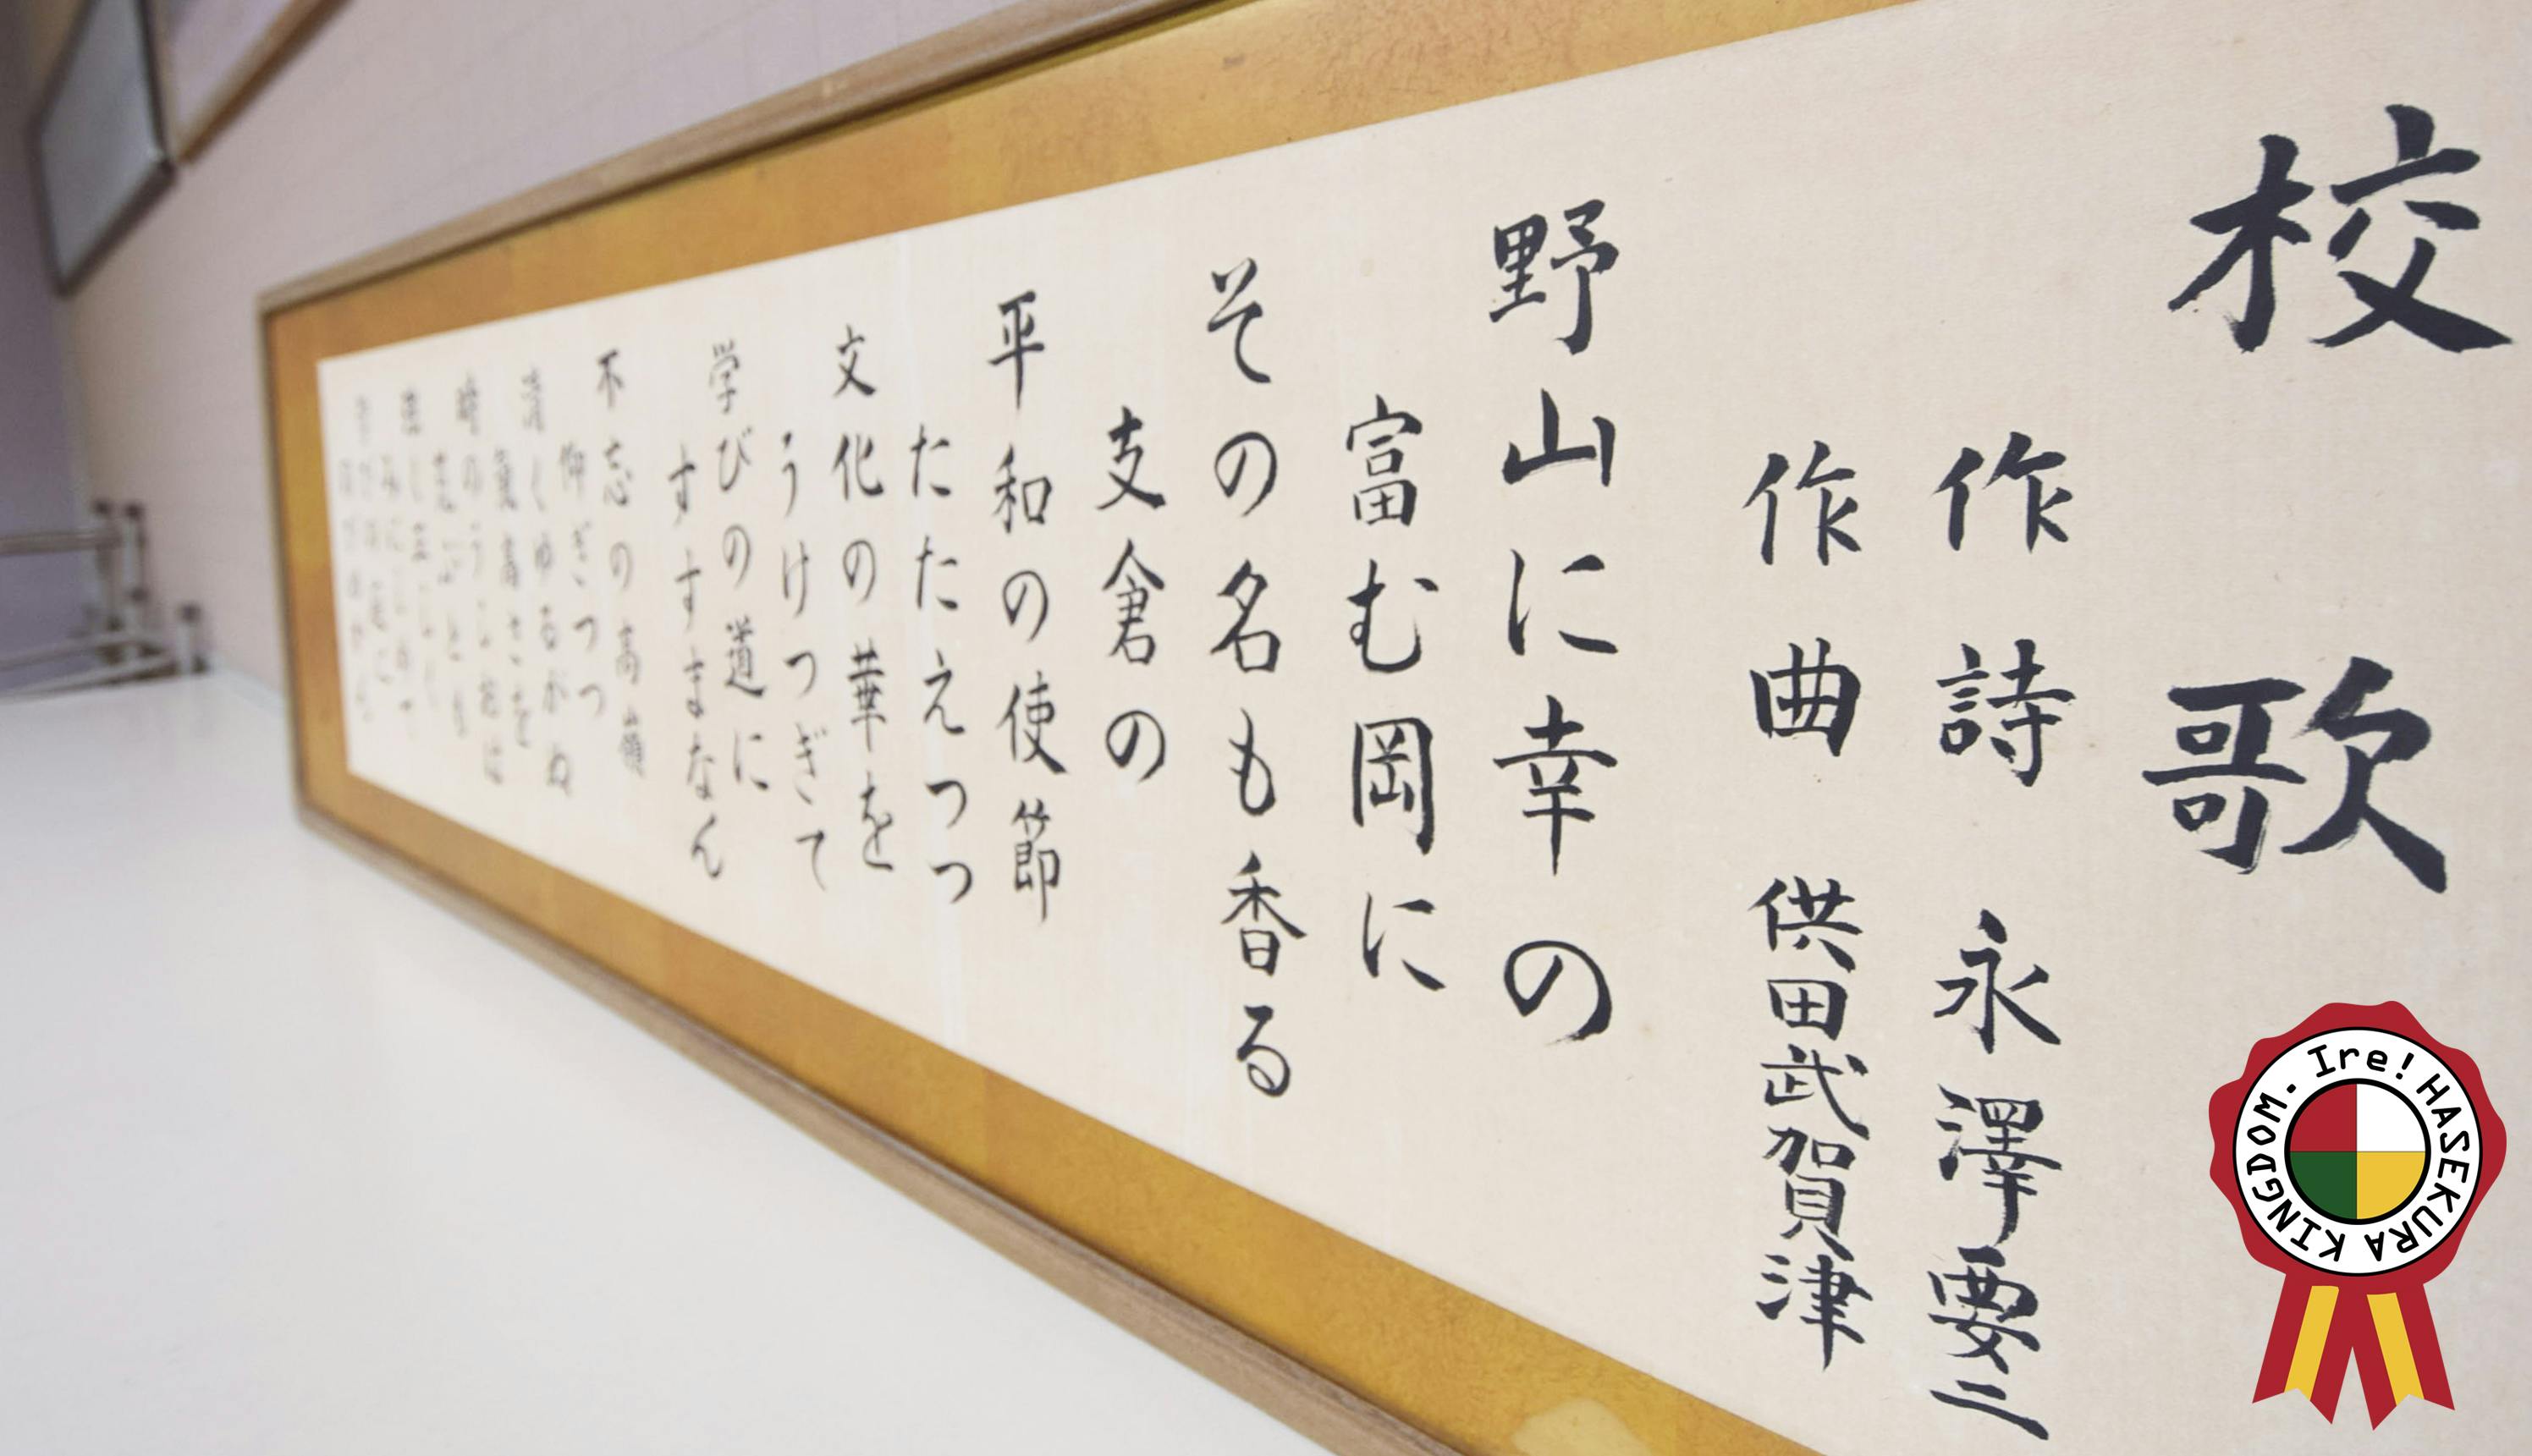 校歌
作詩 永澤要二
作曲 供田武賀津
野山に幸の
富む岡に
その名も香る
支倉の
平和の使節
たたえつつ
文化の華を
うけつぎて
学びの道に
すすまなん
不忘の高嶺
仰ぎつつ
清くゆるがぬ
気高さを
時のうしおは
Ire! HASEKURA KINGDOM.